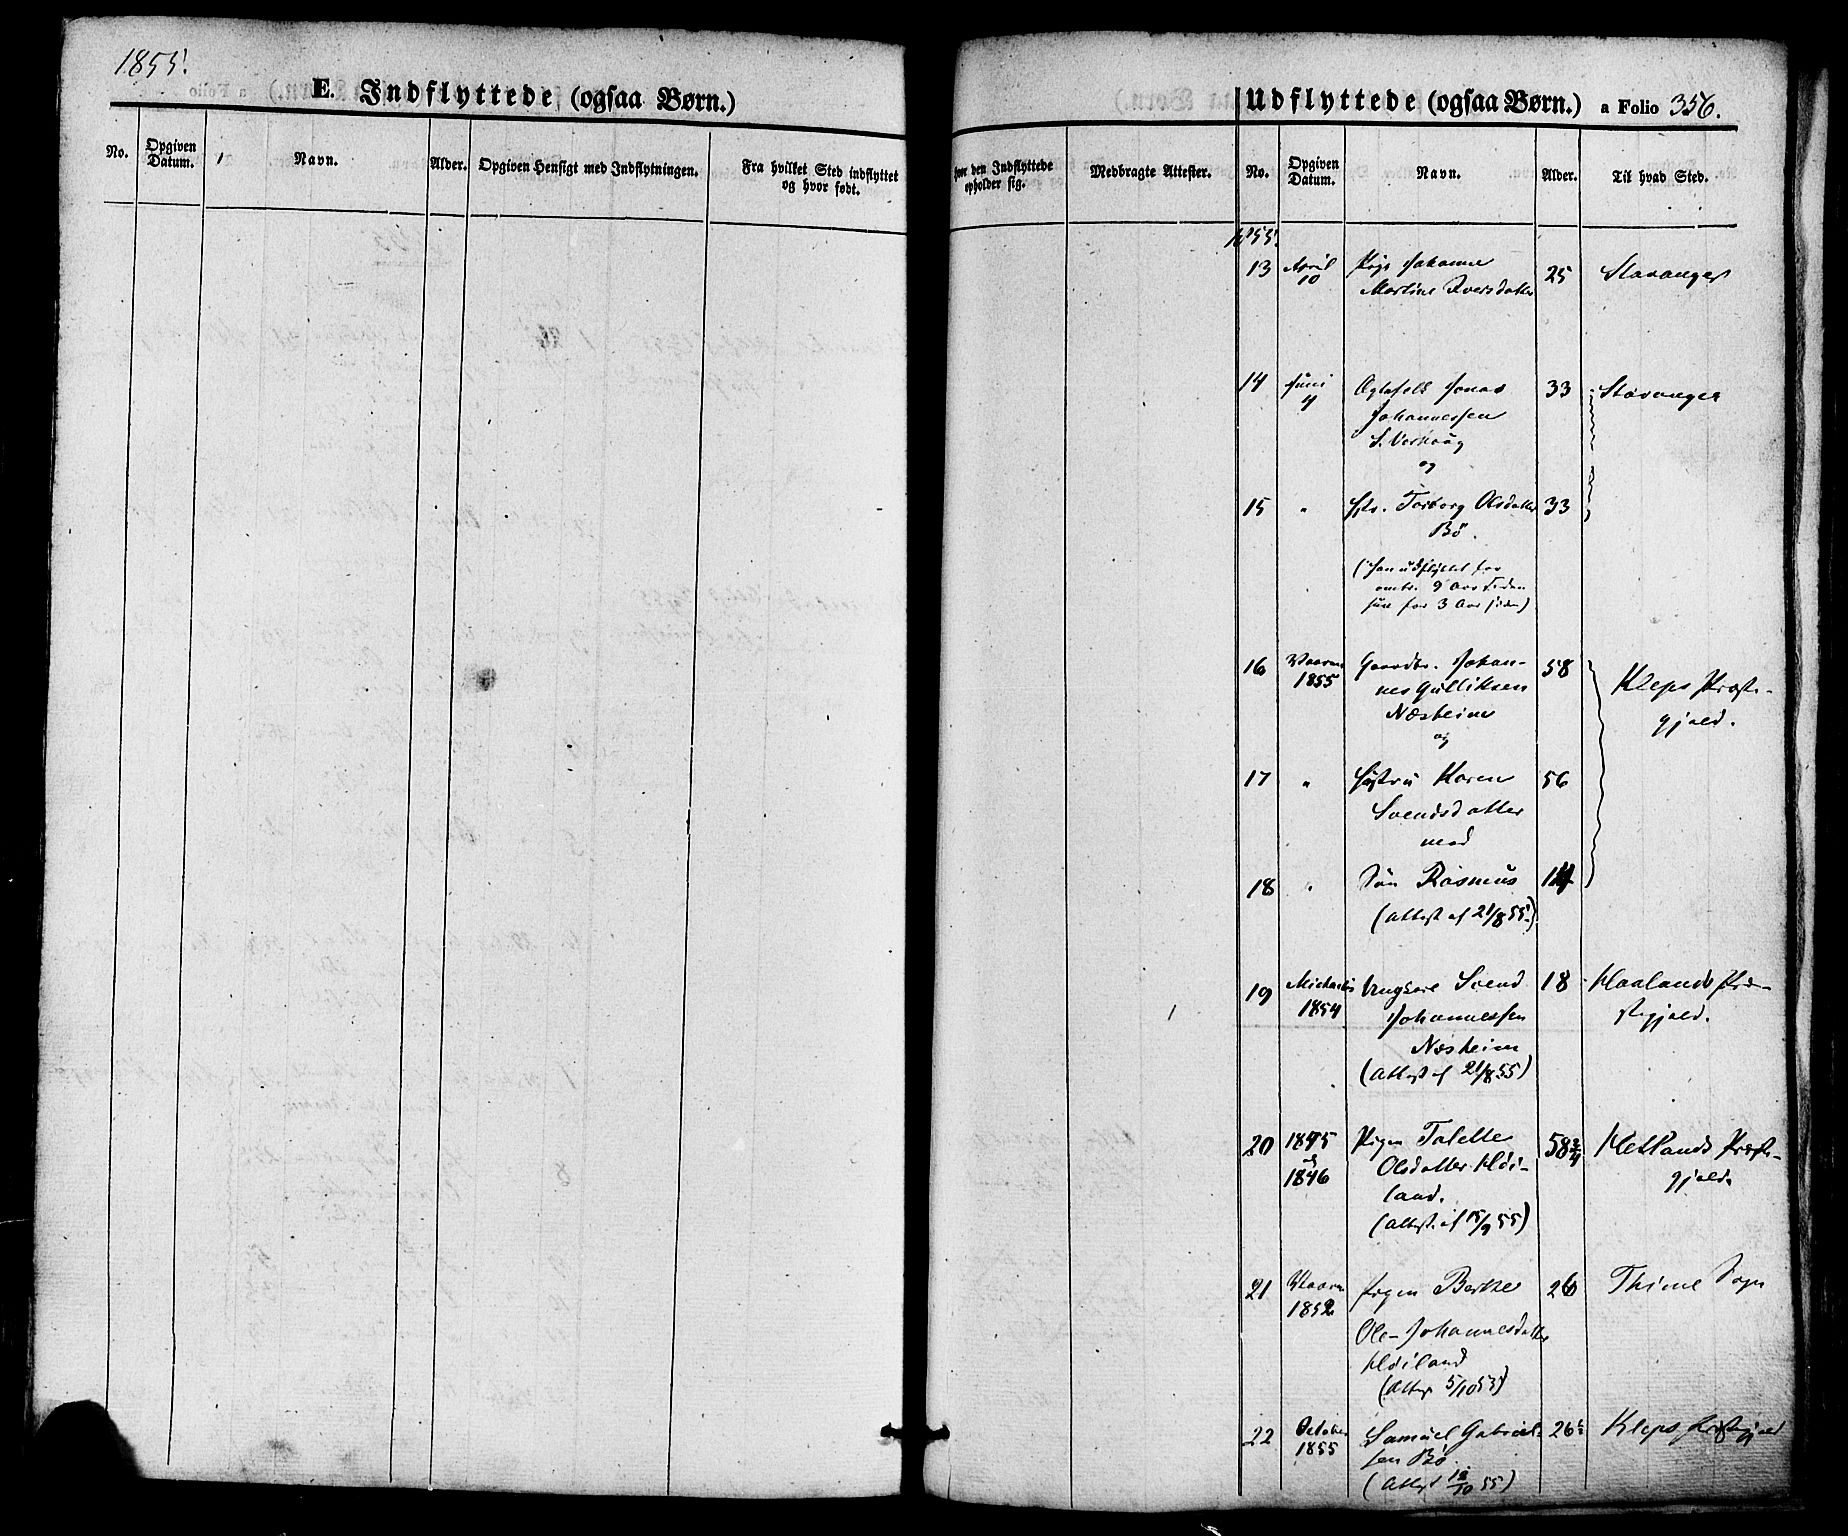 1855.
E. Indflyttede (ogsaa Børn.)
No.
Opgiven Datum.
Navn.
Alder.
Opgiven Hensigt med Indflytningen.
Fra hvilket Sted indflyttet og hvor født.
Udflyttede (ogsaa Børn.) a Folio 356.
hvor den Indflyttede opholder sig.
Medbragte Attester.
No.
Opgiven Datum.
Navn.
Alder.
Til hvad Sted.
1855.
13 April 10 Pige Johanne 25 Stavanger
Martine Iversdatter
14 Juni 4 Jonas 33 Stavanger
Johannessen
og
15 " Torborg Olsdatter 33
Bø.
(han udflyttet for
omtr. 9 Aar siden
hun for 3 Aar siden)
16 Vaaren 1855 Gaardbr. Johan- 58 Kleps Præste-
nes Gulliksen gjæld.
Næsheim
og
17 " Hustru Karen 56
Svendsdatter
med
18 " Søn Rasmus 14
(Attest af 21/8 55.)
19 Michaelis 1854 Ungkarl Svend 18 Haalands Præ-
Johannessen stegjæld.
Næsheim
(Attest af 21/8 55)
20 1845 à 1846 Pigen Talette 58 3/4 Hetlands Præste-
Olsdatter Høi- gjæld.
land.
(Attest. af 15/9 55)
21 Vaaren 1852 Pigen Berthe 26 Thime Sogn
Ole-Johannesdatter
Høiland
(Attest 5/10 53)
22 October 1855 Samuel Gabriel- 26 Kleps Præstegjæld
sen Bø.
(Attest 12/10 55)